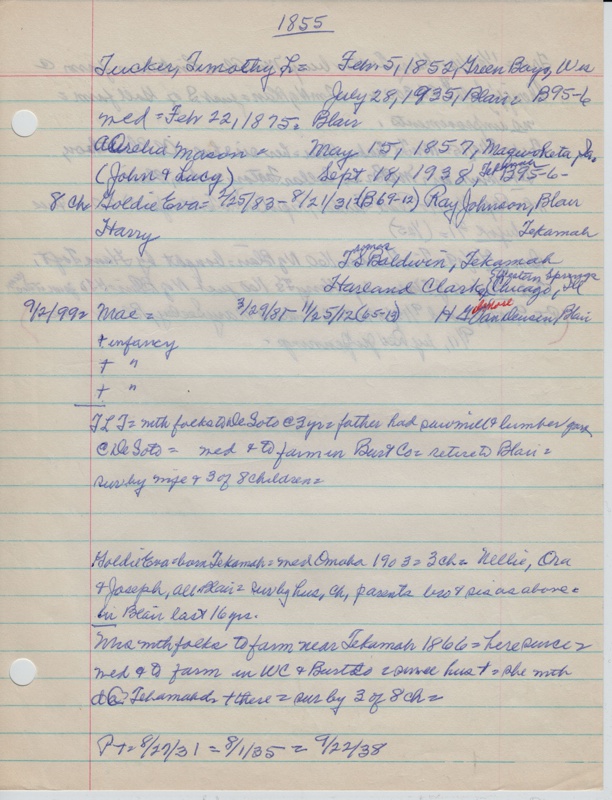 1855
Tucker, Timothy L = Feb 5, 1852, Green Bay, Wis
July 28, 1935, Blair = B95-6
med = Feb 22, 1875. Blair
Aurelia Mason = May 15, 1857, Maquoketa, Ia.
(John & Lucy) Sept 18, 1938, Tekamah B95-6-
8 Ch Goldie Eva = 2/25/83 - 8/21/31 = (B69-12) Ray Johnson, Blair
Harry Tekamah
Baldwin, Tekamah
Harland Clark, Western Springs Chicago, Ill
9/2/99 = Mae = 3/29/85 11/25/12 (65-12) H G Vandeusen, Blair
+ infancy
+ "
+ "
TLT = mth folks to DeSoto @ 3 yrs = father had sawmill & lumber
@ DeSoto = med & to farm in Burt Co = retire to Blair =
sur by wife & 3 of 8 children =
Goldie Eva = born Tekamah = med Omaha 1903 = 3 ch = Nellie, Ora
& Joseph, all Blair = sur by hus, ch, parents bro & sis as above =
in Blair last 16 yrs.
Mrs mth folks to farm near Tekamah 1866 = here since =
med & to farm in WC & Burt Co = since hus + = she mth
Tekamah + there = sur by 3 of 8 ch =
PT = 8/27/31 = 8/1/35 = 9/22/38